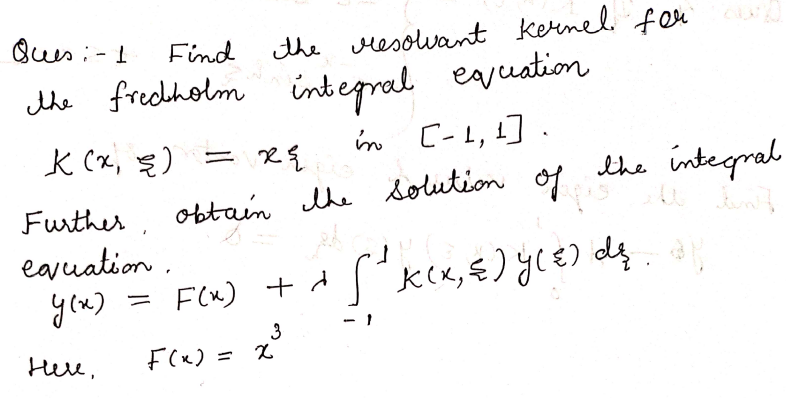 Ques :- 1 Find the resolvant kernel for
the fredholm integral equation
K (x, ξ) = xξ in [-1, 1] .
Further, obtain the solution of the integral
equation.
y(x) = F(x) + λ ∫₋₁¹ K(x, ξ) y(ξ) dξ .
Here, F(x) = x³